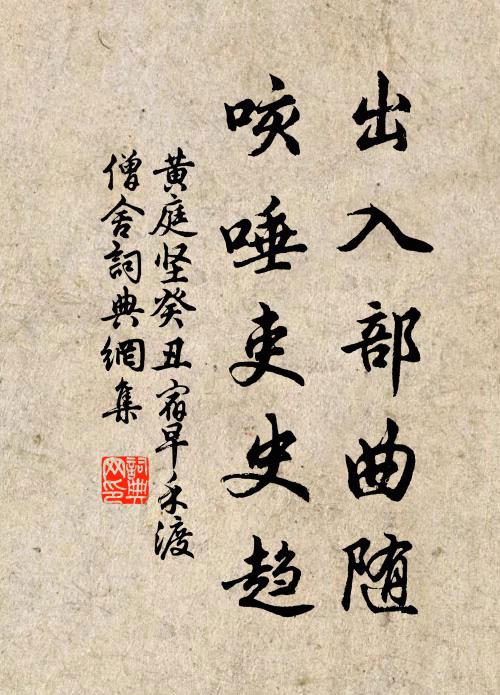 出入部曲随
咳唾吏史趋
黄庭坚癸丑宿早禾渡
僧舍詞典網集
詞典网印